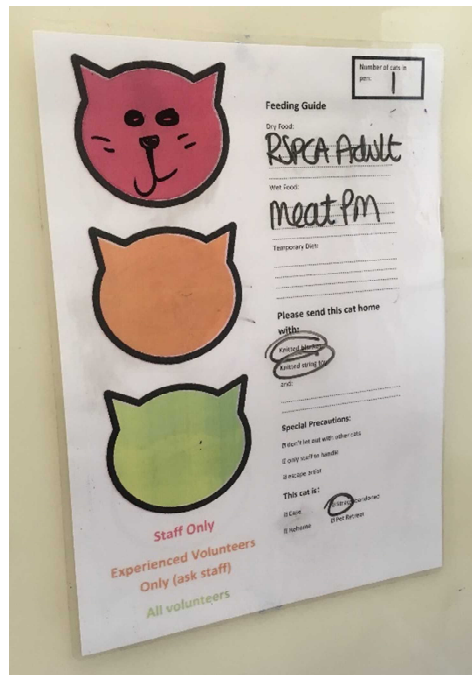 Number of cats in
pen:
1
Feeding Guide
Dry Food:
RSPCA Adult
Wet Food:
Meat PM
Temporary Diet:
Please send this cat home
with:
Knitted blanket
Knitted string toy
and:
Special Precautions:
don't let out with other cats
only staff to handle
escape artist
This cat is:
Stray
Rehome
Pet Retreat
Staff Only
Experienced Volunteers
Only (ask staff)
All volunteers